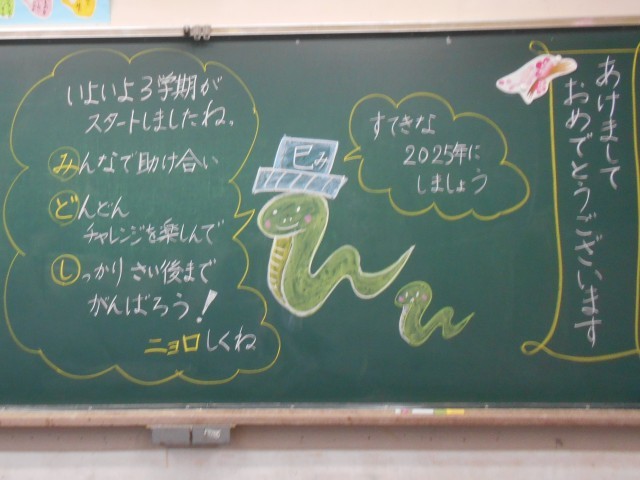 あけまして
おめでとうございます
いよいよ3学期が
スタートしましたね。
みんなで助け合い
どんどん
チャレンジを楽しんで
しっかりさい後まで
がんばろう!
ニョロしくね
巳み
すてきな
2025年に
しましょう